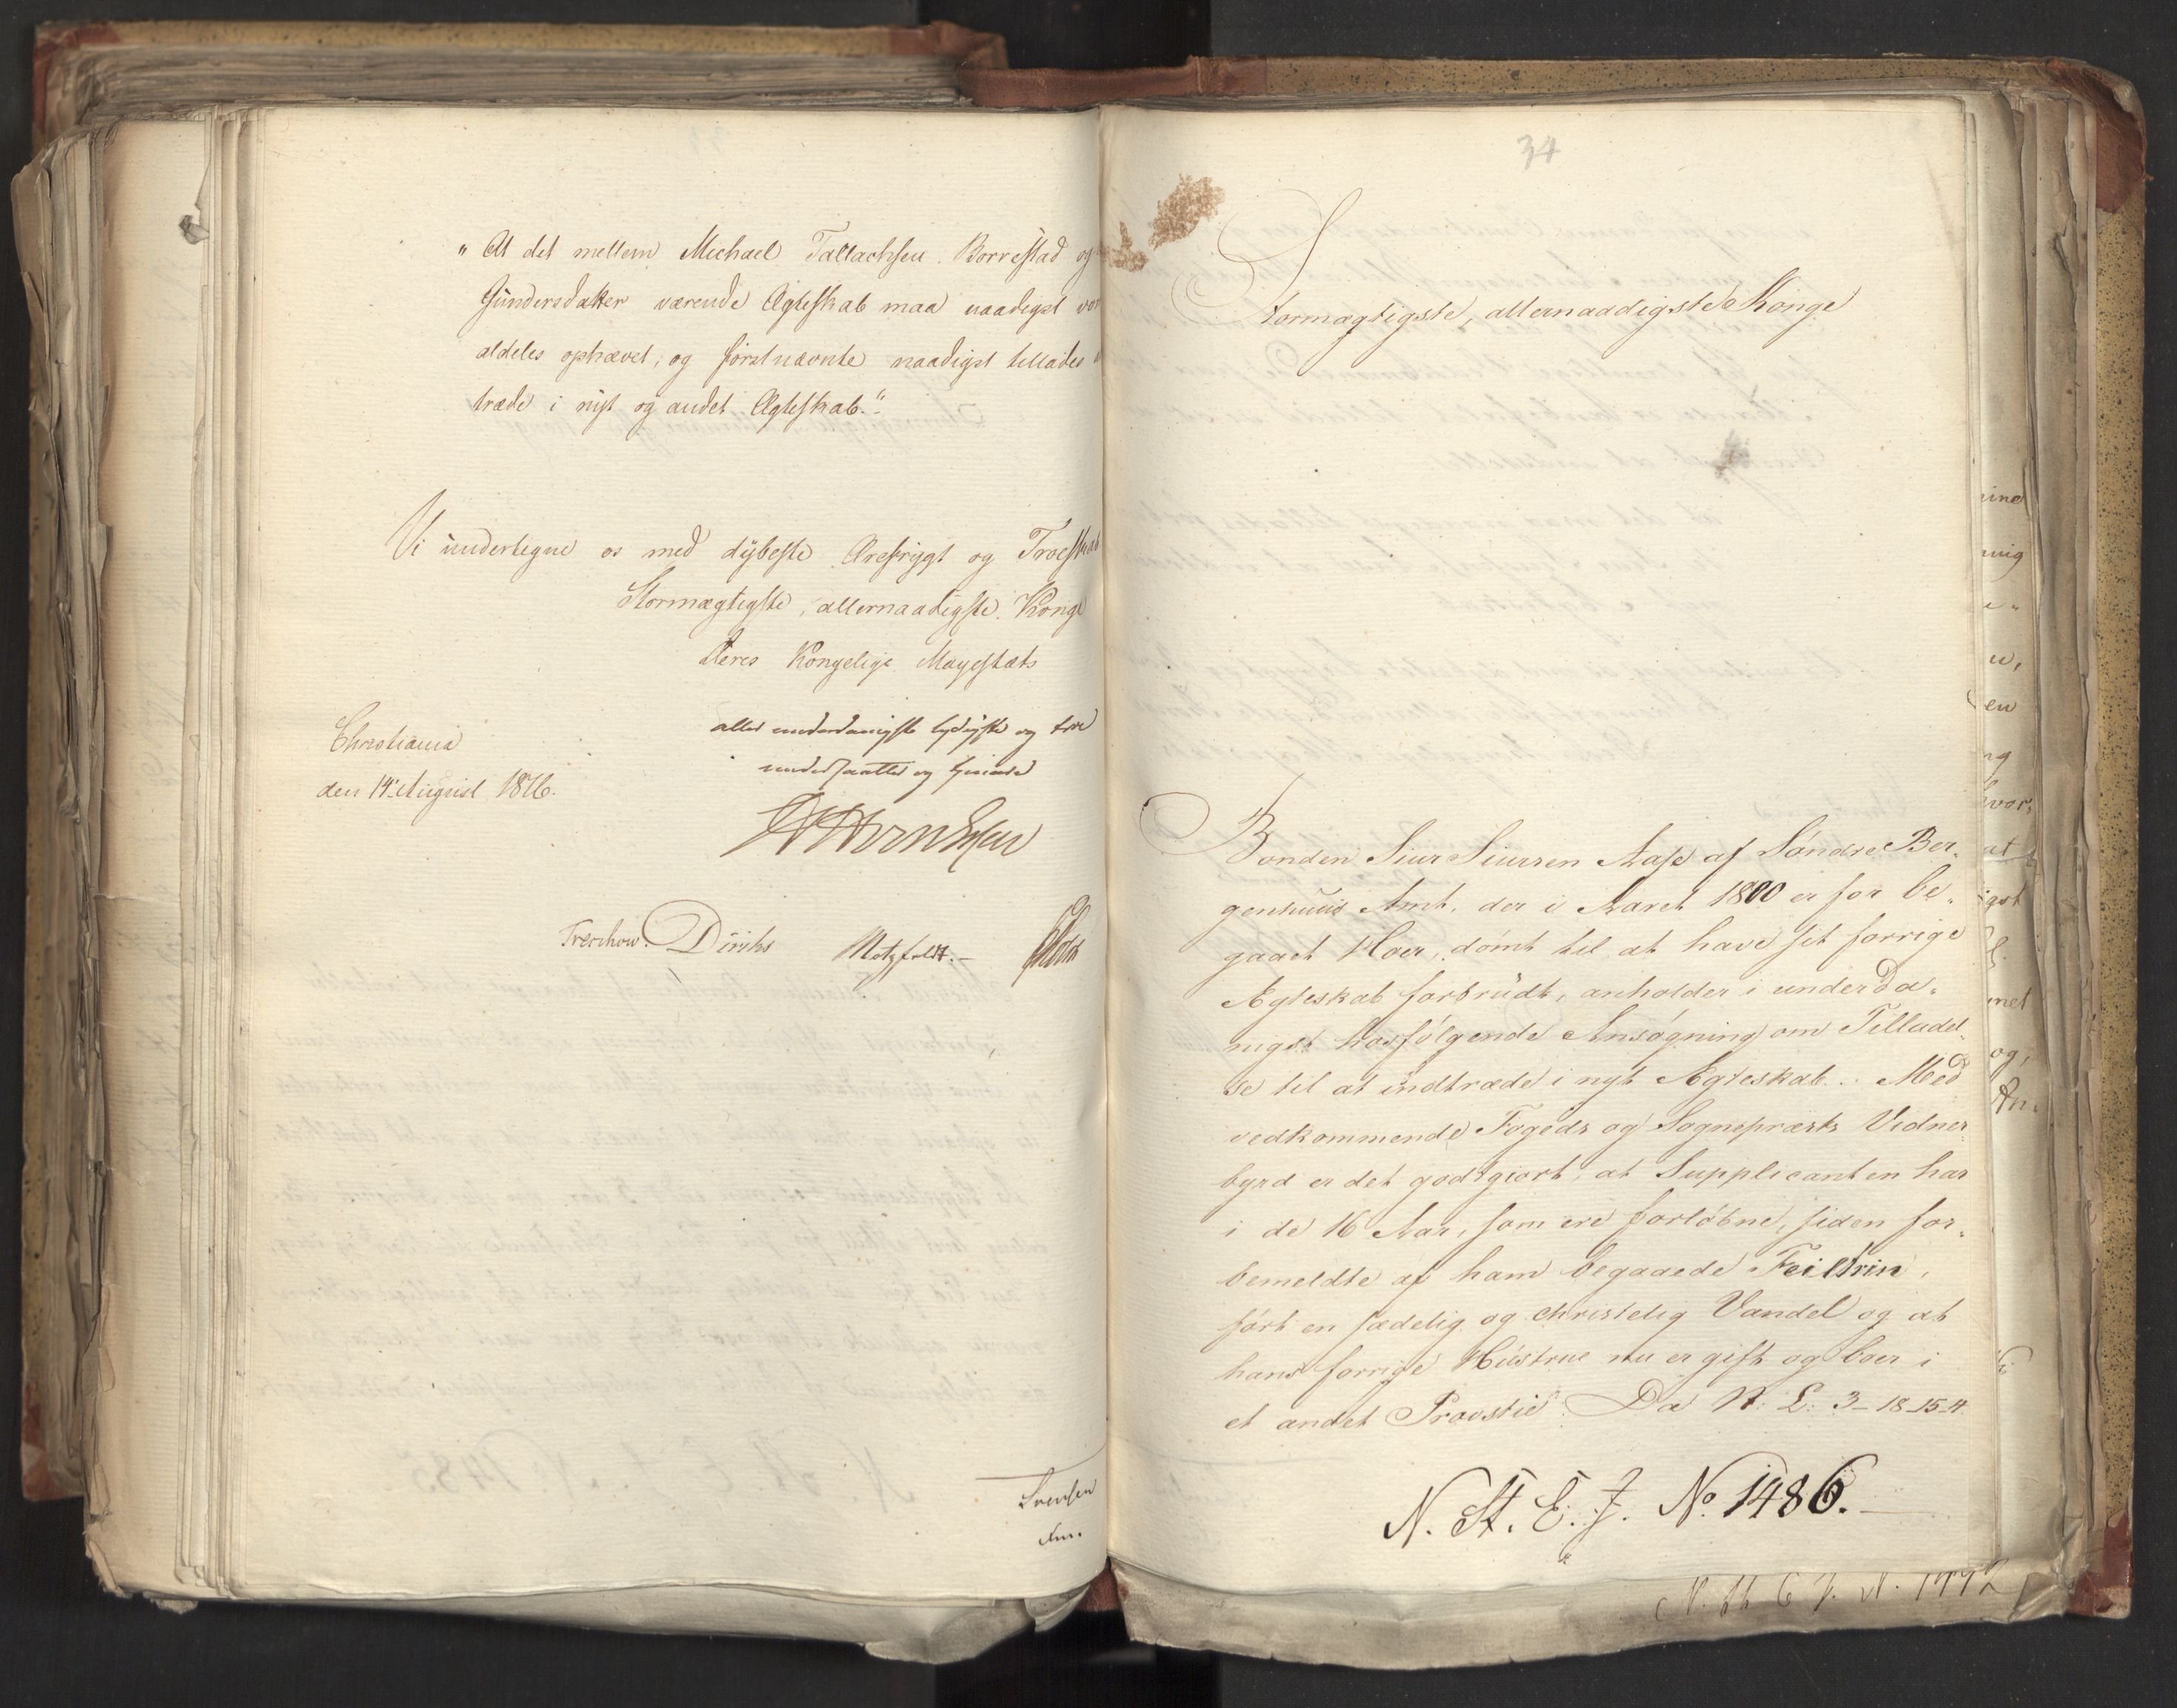 „At det mellem Michael Tallachsen Borrestad og
Gundersdatter værende Ægteskab maa naadigst vor
aldeles ophævet, og førstnævnte naadigst tillades
træde i nyt og andet Ægteskab.“
Vi undertegne os med dybeste Ærefrygt og Troeskab
Stormægtigste, allernaadigste Konge
Deres Kongelige Mayestæts
allerunderdanigste lydigste og troe
undersaatter og tjenere
Christiania
den 14 August 1816.
Treschow. Diriks Motzfeldt.
34
Stormægtigste, allernaadigste Konge
Bonden Siur Siursen Aase af Søndre Ber-
genhuus Amt, der i Aaret 1800 er for be-
gaaet Hoer, dømt til at have sit forrige
Ægteskab forbrudt, anholder i underda-
nigst hosfølgende Ansøgning om Tilladel-
se til at indtræde i nyt Ægteskab. Med
vedkommende Fogeds og Sognepræsts Vidnes-
byrd er det godtgiort, at Supplicanten har
i de 16 Aar, som ere forløbne, siden for-
bemeldte af ham begaaede Feiltrin,
ført en sædelig og christelig Vandel og at
hans forrige Hustrue nu er gift og boer i
et andet Provstie. Da N: L: 3-18-15-4.
N. St. E. J. No 1486.